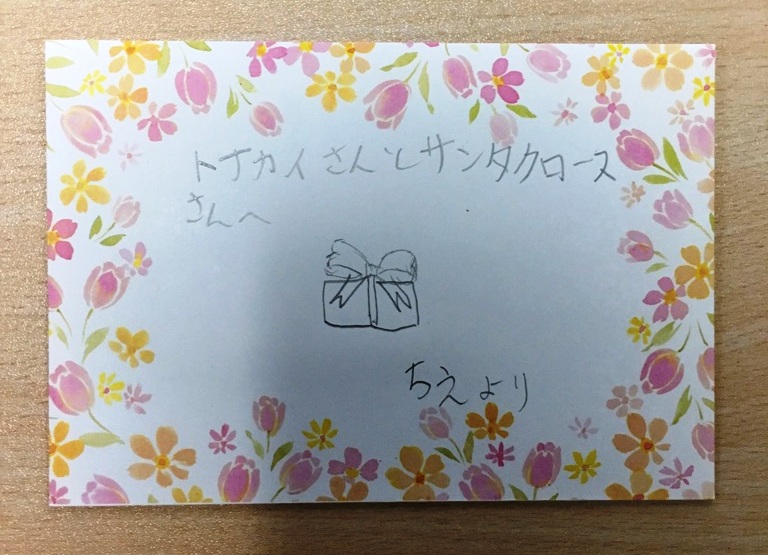 トナカイさんとサンタクロース
さんへ
ちえより